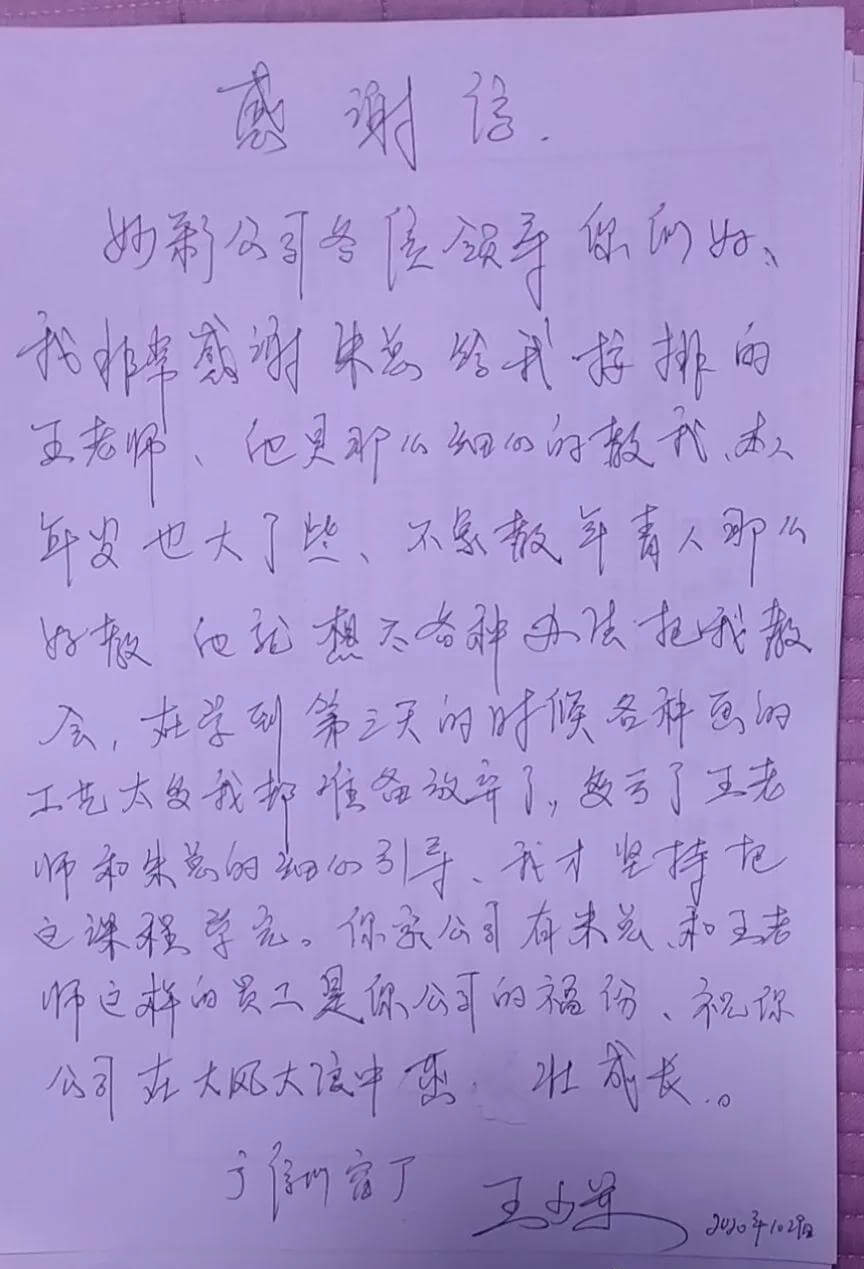 感谢信.
妙影公司各位领导你们好、
我非常感谢朱总给我按排的
王老师、他是那么细心的教我、本人
年岁也大了些、不象教年青人那么
好教 他就想尽各种办法把我教
会，在学到第三天的时候各种画的
工艺太多我都准备放弃了，多亏了王老
师和朱总的细心引导、我才坚持把
这课程学完。你家公司有朱总、和王老
师这样的员工是你公司的福份、祝你
公司在大风大浪中 壮成长.。
王
2020年10 29日